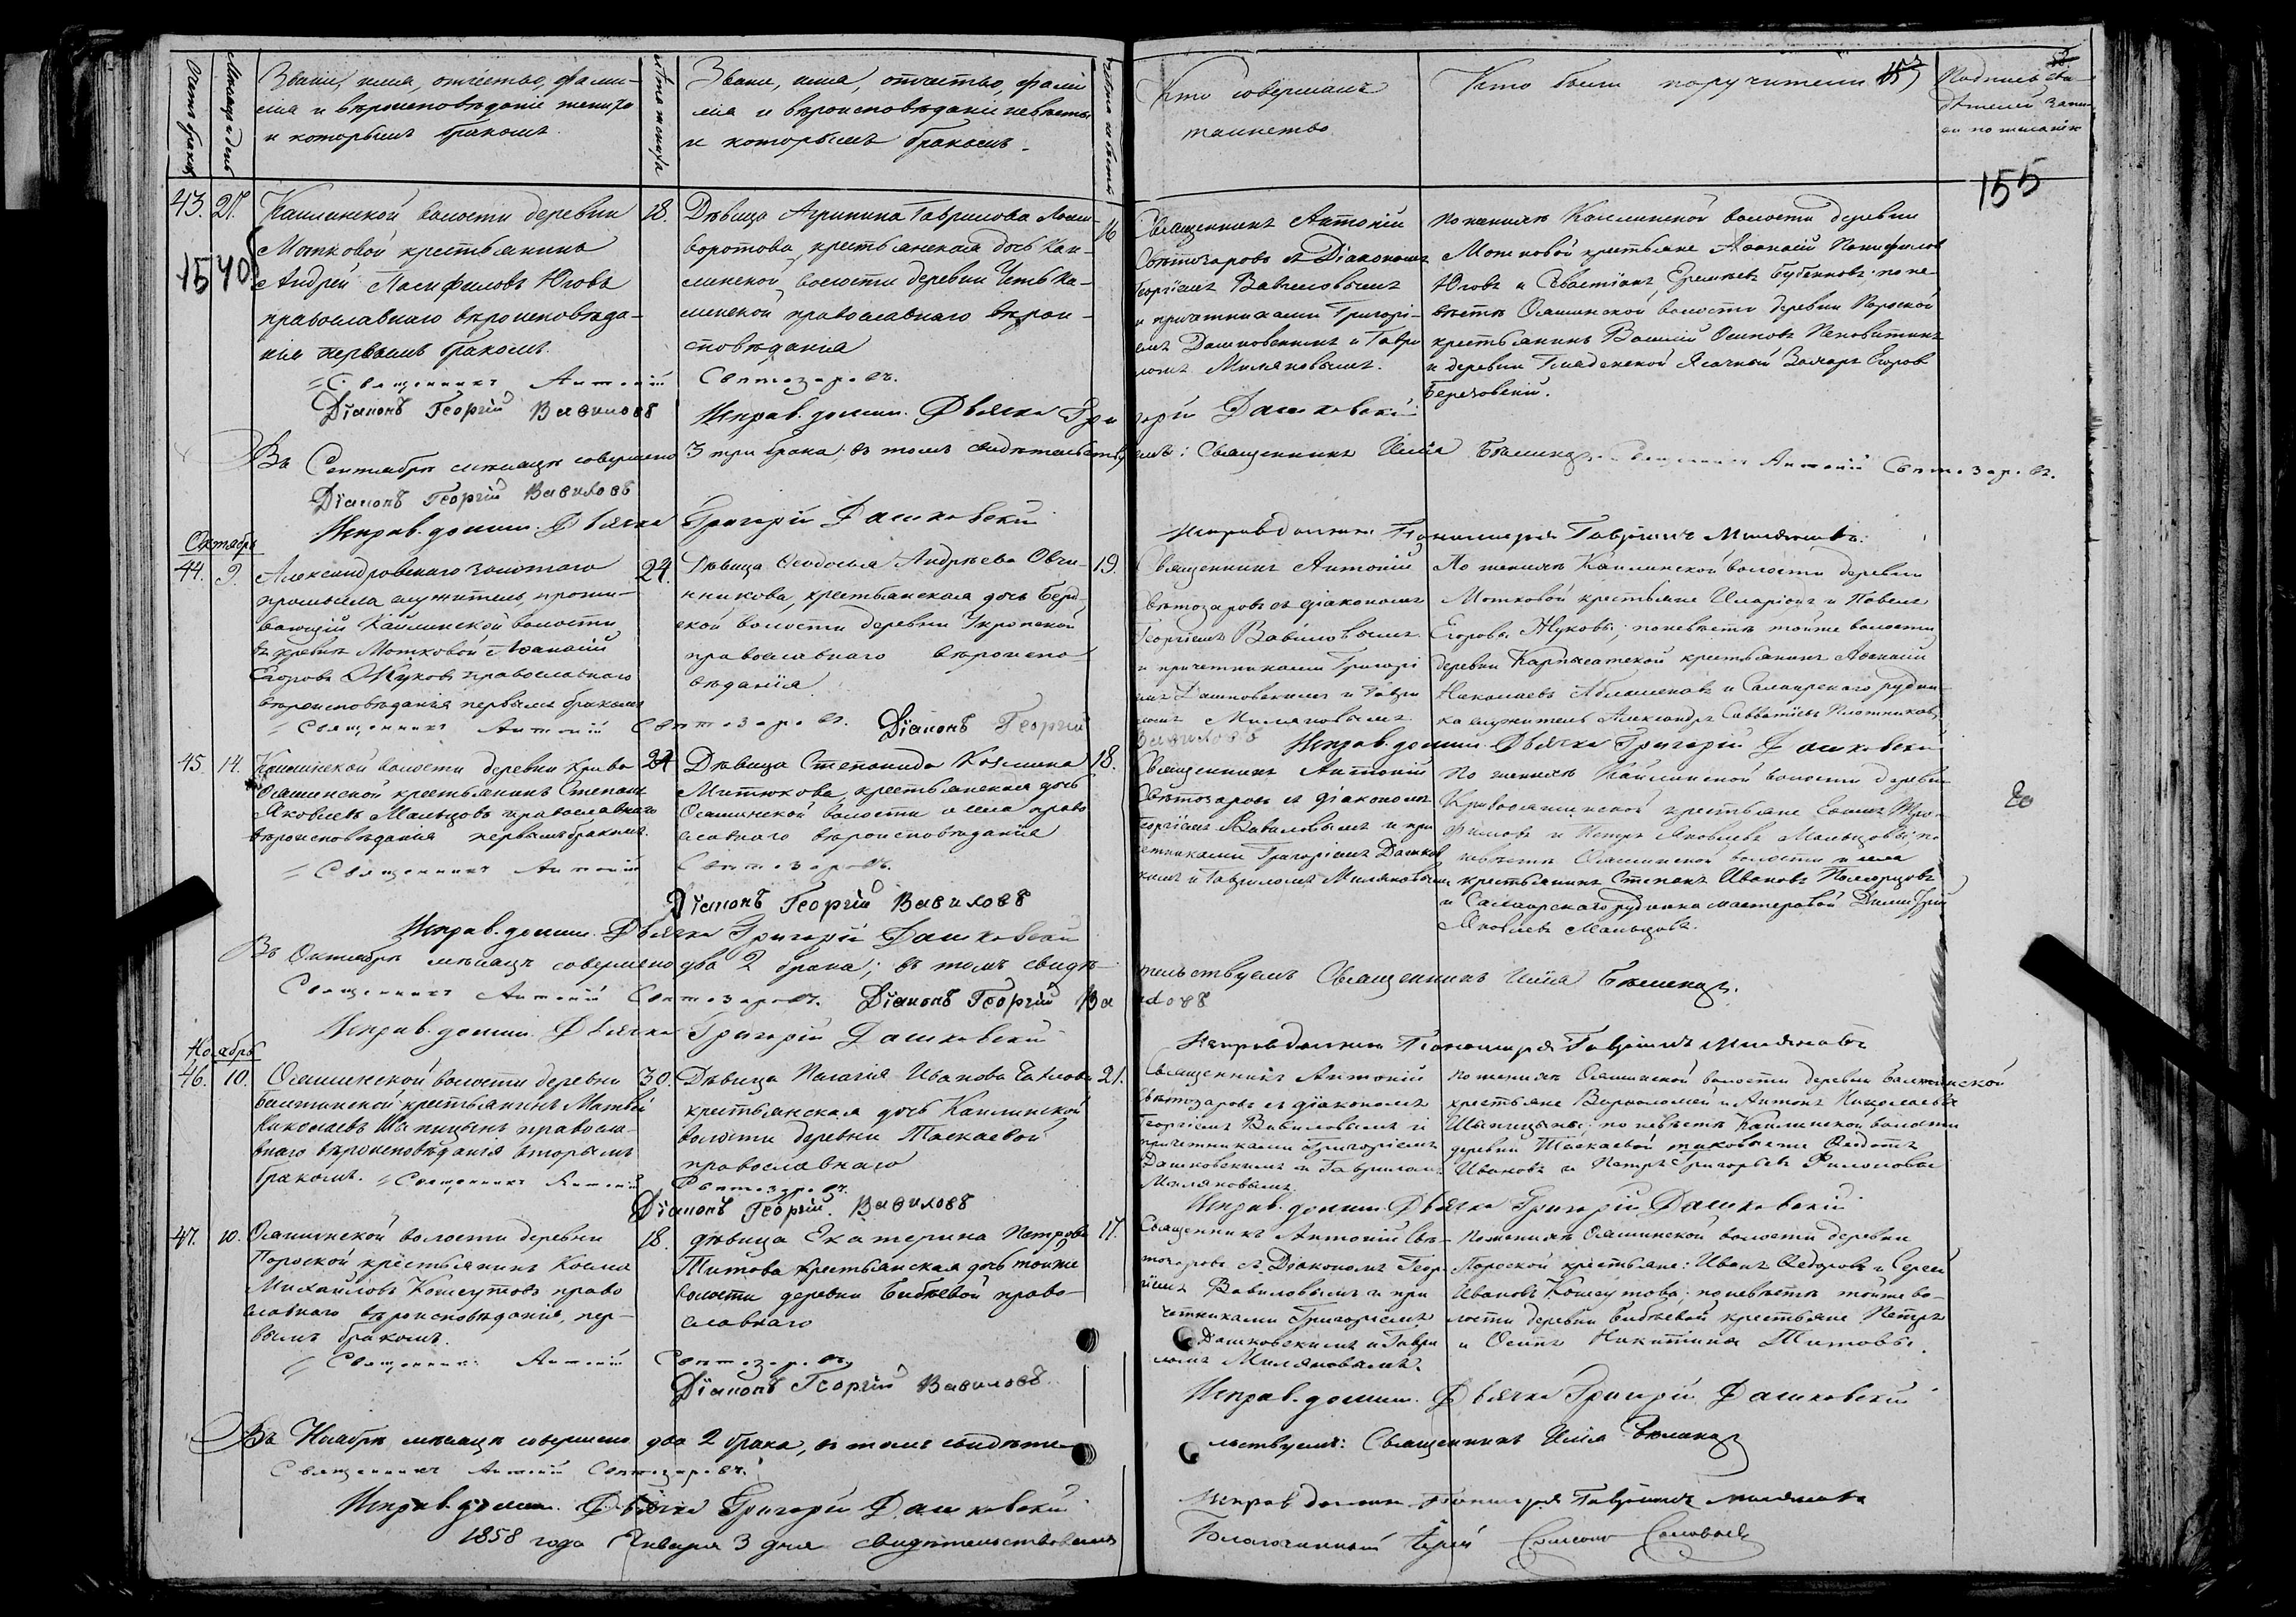 Счетъ браковъ
Мѣсяцъ и день
Званіе, имя, отчество, фами-
лія и вѣроисповѣданіе жениха
и которымъ бракомъ
Лѣта жениха
Званіе, имя, отчество, фами
лія и вѣроисповѣданіе невѣсты
и которымъ бракомъ.
Лѣта невѣсты
Кто совершалъ
таинство
Кто были поручители
Подпись сви-
дѣтелей запи
си по желанію
155
43. 27. Каилинской волости деревни
Мотковой крестьянинъ
Андрей Панфиловъ Юговъ
православнаго вѣроисповѣда-
нія первымъ бракомъ.
1540
18.
Дѣвица Агрипина Гаврилова
воротова, крестьянская дочь Каи-
линской волости деревни Усть Ка-
менской православнаго вѣрои-
сповѣданія
16
Священникъ Антоній
Свѣтозаровъ съ Діакономъ
Георгіемъ Вавиловымъ
и причетниками Григорі-
емъ Дашковскимъ и Гаври
ломъ Миляновымъ.
по женихѣ Каилинской волости деревни
Мотковой крестьяне Афанасій Панфиловъ
Юговъ и Севастіанъ Еремѣевъ Бубенновъ по не-
вѣстѣ Ояшинской волости деревни Поросской
крестьянинъ Василій Осиповъ
и деревни Гнаденской Ясачный Захаръ Егоровъ
Березовскій.
Священникъ Антоній Свѣтозаровъ.
Діаконъ Георгій Вавиловъ
Исправ. должн. Дьячка Григорій Дашковскій
Въ Сентябрѣ мѣсяцѣ совершено 3 три брака; въ томъ свидѣтельствуемъ: Священникъ Илія Священникъ Антоній Свѣтозаровъ.
Діаконъ Георгій Вавиловъ
Исправ. должн. Дьячка Григорій Дашковскій
Исправ должн Пономаря Гавріилъ Миляновъ.
Октябрь
44. 9. Александровскаго золотаго
промысла служитель, прожи-
вающій Каилинской волости
въ деревнѣ Мотковой Афанасій
Егоровъ Жуковъ православнаго
вѣроисповѣданія первымъ бракомъ
24.
Дѣвица Феодосья Андрѣева Овчи-
нникова, крестьянская дочь Берд-
ской волости деревни Укропской
православнаго вѣроиспо-
вѣданія
19.
Священникъ Антоній
Свѣтозаровъ съ діакономъ
Георгіемъ Вавиловымъ
и причетниками Григорі
емъ Дашковскимъ и Гаври
ломъ Миляновымъ
По женихѣ Каилинской волости деревни
Мотковой крестьяне Иларіонъ и Павелъ
Егоровы Жуковы; по невѣстѣ тойже волости
деревни Карпысатской крестьянинъ Афанасій
Николаевъ и Салаирскаго рудни-
ка служитель Александръ Савватѣевъ Плотниковъ
Священникъ Антоній Свѣтозаровъ. Діаконъ Георгій
Вавиловъ Исправ. должн. Дьячка Григорій Дашковскій
45. 14. Каилинской волости деревни Криво
Ояшинской крестьянинъ Степанъ
Яковлевъ Мальцовъ православнаго
вѣроисповѣданія первымъ бракомъ.
24
Дѣвица Степанида Козмина
Митюкова, крестьянская дочь
Ояшинской волости и села право
славнаго вѣроисповѣданія
18.
Священникъ Антоній
Свѣтозаровъ съ діакономъ
Георгіемъ Вавиловымъ и при
четниками Григоріемъ Дашков
скимъ и Гавриломъ Миляновымъ
по женихѣ Каилинской волости деревни
Кривоояшинской крестьяне Тро-
фимовъ и Петръ Яковлевъ Мальцовы; по
невѣстѣ Ояшинской волости и села
крестьянинъ Степанъ Ивановъ
и Салаирскаго рудника мастеровой Димитрій
Яковлевъ Мальцовъ.
Священникъ Антоній Свѣтозаровъ.
Діаконъ Георгій Вавиловъ
Исправ. должн. Дьячка Григорій Дашковскій
Въ Октябрѣ мѣсяцѣ совершено два 2 брака; въ томъ свидѣ-
тельствуемъ Священникъ Илія
Священникъ Антоній Свѣтозаровъ. Діаконъ Георгій Вавиловъ
Исправ. должн. Дьячка Григорій Дашковскій
Исправ должн Пономаря Гавріилъ Миляновъ
Ноябрь
46. 10. Ояшинской волости деревни
Балтинской крестьянинъ Матвей
Николаевъ Шыпицынъ правосла-
внаго вѣроисповѣданія вторымъ
бракомъ.
30.
Дѣвица Пелагія Иванова
крестьянская дочь Каилинской
волости деревни Таскаевой
православнаго
21.
Священникъ Антоній
Свѣтозаровъ съ діакономъ
Георгіемъ Вавиловымъ и
причетниками Григоріемъ
Дашковскимъ и Гавриломъ
Миляновымъ
по женихѣ Ояшинской волости деревни Балтинской
крестьяне Варфоломей и Антонъ Николаевы
Шыпицыны; по невѣстѣ Каилинской волости
деревни Таскаевой таковыеже Федотъ
Ивановъ и Петръ Григорьевъ Филоновы
Священникъ Антоній Свѣтозаровъ.
Діаконъ Георгій Вавиловъ
Исправ. должн. Дьячка Григорій Дашковскій
47. 10. Ояшинской волости деревни
Поросской крестьянинъ Косма
Михайловъ Кошкутовъ право
славнаго вѣроисповѣданія, пер-
вымъ бракомъ.
18.
дѣвица Екатерина Петрова
Титова крестьянская дочь тойже
волости деревни Бибѣевой право-
славнаго
17.
Священникъ Антоній Свѣ-
тозаровъ съ Діакономъ Геор
гіемъ Вавиловымъ и при
четниками Григоріемъ
Дашковскимъ и Гаври
ломъ Миляновымъ.
По женихѣ Ояшинской волости деревни
Поросской крестьяне: Иванъ Федоровъ и Сергей
Ивановъ Кошкутовы; по невѣстѣ тойже во-
лости деревни Бибѣевой крестьяне Петръ
и Осипъ Никитины Титовы.
Священникъ Антоній Свѣтозаровъ
Діаконъ Георгій Вавиловъ
Исправ. должн. Дьячка Григорій Дашковскій
Въ Ноябрѣ мѣсяцѣ совершено два 2 брака, въ томъ свидѣте
льствуемъ: Священникъ Илія
Священникъ Антоній Свѣтозаровъ.
Исправ. должн. Дьячка Григорій Дашковскій
Исправ должн Пономаря Гавріилъ Миляновъ
1858 года Января 3 дня свидѣтельствовалъ
Благочинный Іерей Соловьевъ